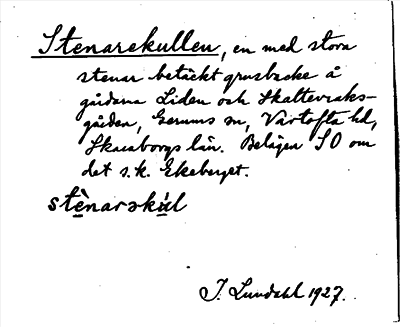 Stenarekullen, en med stora
stenar betäckt grusbacke å
gårdarna Liden och Skattevraks-
gården, Gerums sn, Vartofta hd,
Skaraborgs län. Belägen SO om
det s.k. Ekeberget.
stènarskúl
I. Lundahl 1927.